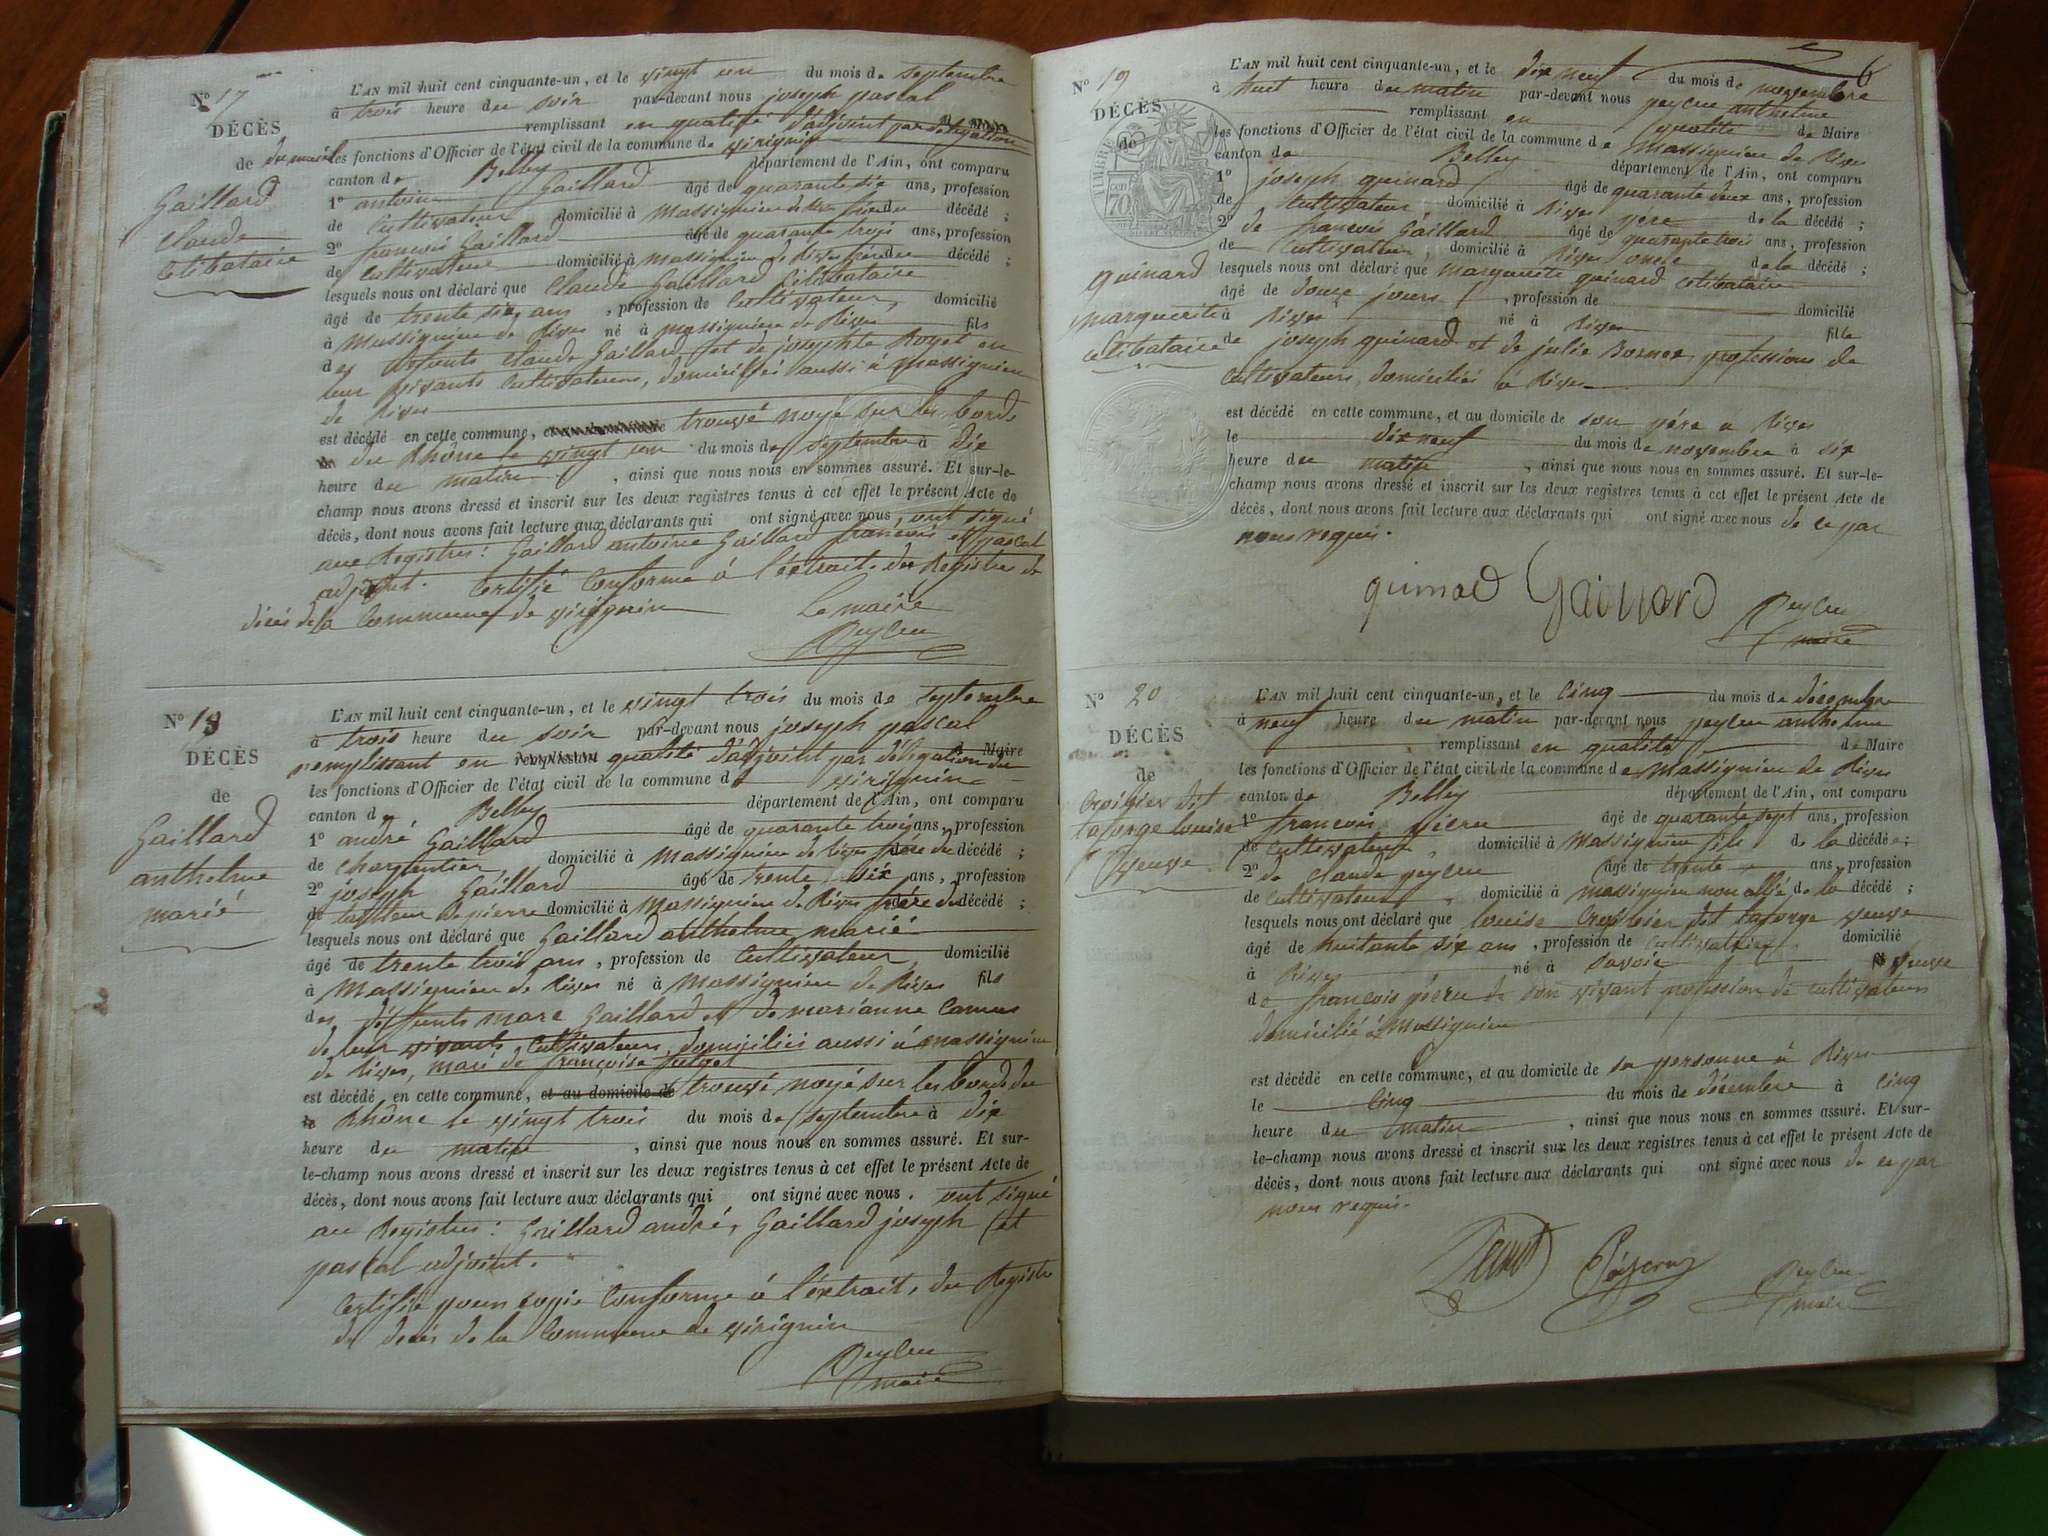 N° 17
DÉCÈS
de
Gaillard
Claude
Celibataire
L'AN mil huit cent cinquante-un, et le vingt un du mois de septembre
à trois heure du soir par-devant nous joseph pascal
remplissant en qualité d'adjoint par délégation
les fonctions d'Officier de l'état civil de la commune de virignin
canton de Belley département de l'Ain, ont comparu
1° antoine Gaillard âgé de quarante six ans, profession
de Cultivateur domicilié à Massignieu de Rives frère du décédé ;
2° francois Gaillard âgé de quarante trois ans, profession
de Cultivateur domicilié à Massignieu de Rives frère du décédé ;
lesquels nous ont déclaré que Claude Gaillard Célibataire
âgé de trente six ans , profession de Cultivateur, domicilié
à Massignieu de Rives né à Massignieu de Rives fils
des défunts Claude Gaillard et de josephte Royet en
leur vivants Cultivateurs, domiciliés aussi à Massignieu
de Rives
est décédé en cette commune, trouvé noyé sur les bords
du Rhône le vingt un du mois de septembre à dix
heure du matin , ainsi que nous nous en sommes assuré. Et sur-le-
champ nous avons dressé et inscrit sur les deux registres tenus à cet effet le présent Acte de
décès, dont nous avons fait lecture aux déclarants qui ont signé avec nous, ont signé
aux Registres : Gaillard antoine Gaillard francois et pascal
adjoint. Certifié Conforme à l'extrait du Registre de
décès de la Commune de virignin Le maire
Peylin
N° 18
DÉCÈS
de
Gaillard
anthelme
marié
L'AN mil huit cent cinquante-un, et le vingt trois du mois de septembre
à trois heure du soir par-devant nous joseph pascal
remplissant en qualité d'adjoint par délégation du Maire
les fonctions d'Officier de l'état civil de la commune de virignin
canton de Belley département de l'Ain, ont comparu
1° andré Gaillard âgé de quarante trois ans, profession
de Charpentier domicilié à Massignieu de Rives frère du décédé ;
2° joseph Gaillard âgé de trente six ans, profession
de tailleur de pierre domicilié à Massignieu de Rives frère du décédé ;
lesquels nous ont déclaré que Gaillard anthelme marié
âgé de trente trois ans, profession de Cultivateur domicilié
à Massignieu de Rives né à Massignieu de Rives fils
des défunts marc Gaillard et de marianne Camus
de leur vivants Cultivateurs, domiciliés aussi à massignieu
de Rives, marié de françoise
est décédé en cette commune, et au domicile de trouvé noyé sur les bords du
le Rhône le vingt trois du mois de septembre à dix
heure du matin , ainsi que nous nous en sommes assuré. Et sur-
le-champ nous avons dressé et inscrit sur les deux registres tenus à cet effet le présent Acte de
décès, dont nous avons fait lecture aux déclarants qui ont signé avec nous. ont signé
au Registres : Gaillard andré, Gaillard joseph et
pascal adjoint.
Certifié pour copie Conforme à l'extrait, du Registre
de décès de la Commune de virignin
Peylin
maire
6
N° 19
DÉCÈS
de
TIMBRE
70
guinard
marguerite
celibataire
L'AN mil huit cent cinquante-un, et le dix neuf du mois de novembre
à huit heure du matin par-devant nous peylin anthelme
remplissant en qualité de Maire
les fonctions d'Officier de l'état civil de la commune de Massignieu de Rives
canton de Belley département de l'Ain, ont comparu
1° joseph guinard âgé de quarante deux ans, profession
de Cultivateur, domicilié à Rives père de la décédé ;
2° de francois Gaillard âgé de quarante trois ans, profession
de Cultivateur, domicilié à Rives oncle de la décédé ;
lesquels nous ont déclaré que marguerite guinard celibataire
âgé de douze jours , profession de domicilié
à Rives né à Rives fille
de joseph guinard et de julie Bornet professions de
Cultivateurs, domiciliés à Rives
est décédé en cette commune, et au domicile de son père a Rives
le dix neuf du mois de novembre à six
heure du matin , ainsi que nous nous en sommes assuré. Et sur-le-
champ nous avons dressé et inscrit sur les deux registres tenus à cet effet le présent Acte de
décès, dont nous avons fait lecture aux déclarants qui ont signé avec nous de ce par
nous requis.
guinard Gaillard Peylin
maire
N° 20
DÉCÈS
de
Croibier dit
laforge louise
veuve
L'AN mil huit cent cinquante-un, et le Cinq du mois de décembre
à neuf heure du matin par-devant nous peylin anthelme
remplissant en qualité de Maire
les fonctions d'Officier de l'état civil de la commune de Massignieu de Rives
canton de Belley département de l'Ain, ont comparu
1° francois âgé de quarante sept ans, profession
de Cultivateur, domicilié à Massignieu fils de la décédé ;
2° de Claude peylin âgé de trente ans, profession
de Cultivateur, domicilié à massignieu non allié de la décédé ;
lesquels nous ont déclaré que louise Croibier dit laforge veuve
âgé de huitante six ans , profession de Cultivatrice, domicilié
à Rives né à Savoie veuve
de francois de son vivant profession de cultivateur
domicilié à Massignieu
est décédé en cette commune, et au domicile de sa personne à Rives
le Cinq du mois de décembre à Cinq
heure du matin , ainsi que nous nous en sommes assuré. Et sur-
le-champ nous avons dressé et inscrit sur les deux registres tenus à cet effet le présent Acte de
décès, dont nous avons fait lecture aux déclarants qui ont signé avec nous de ce par
nous requis.
Peylin
maire